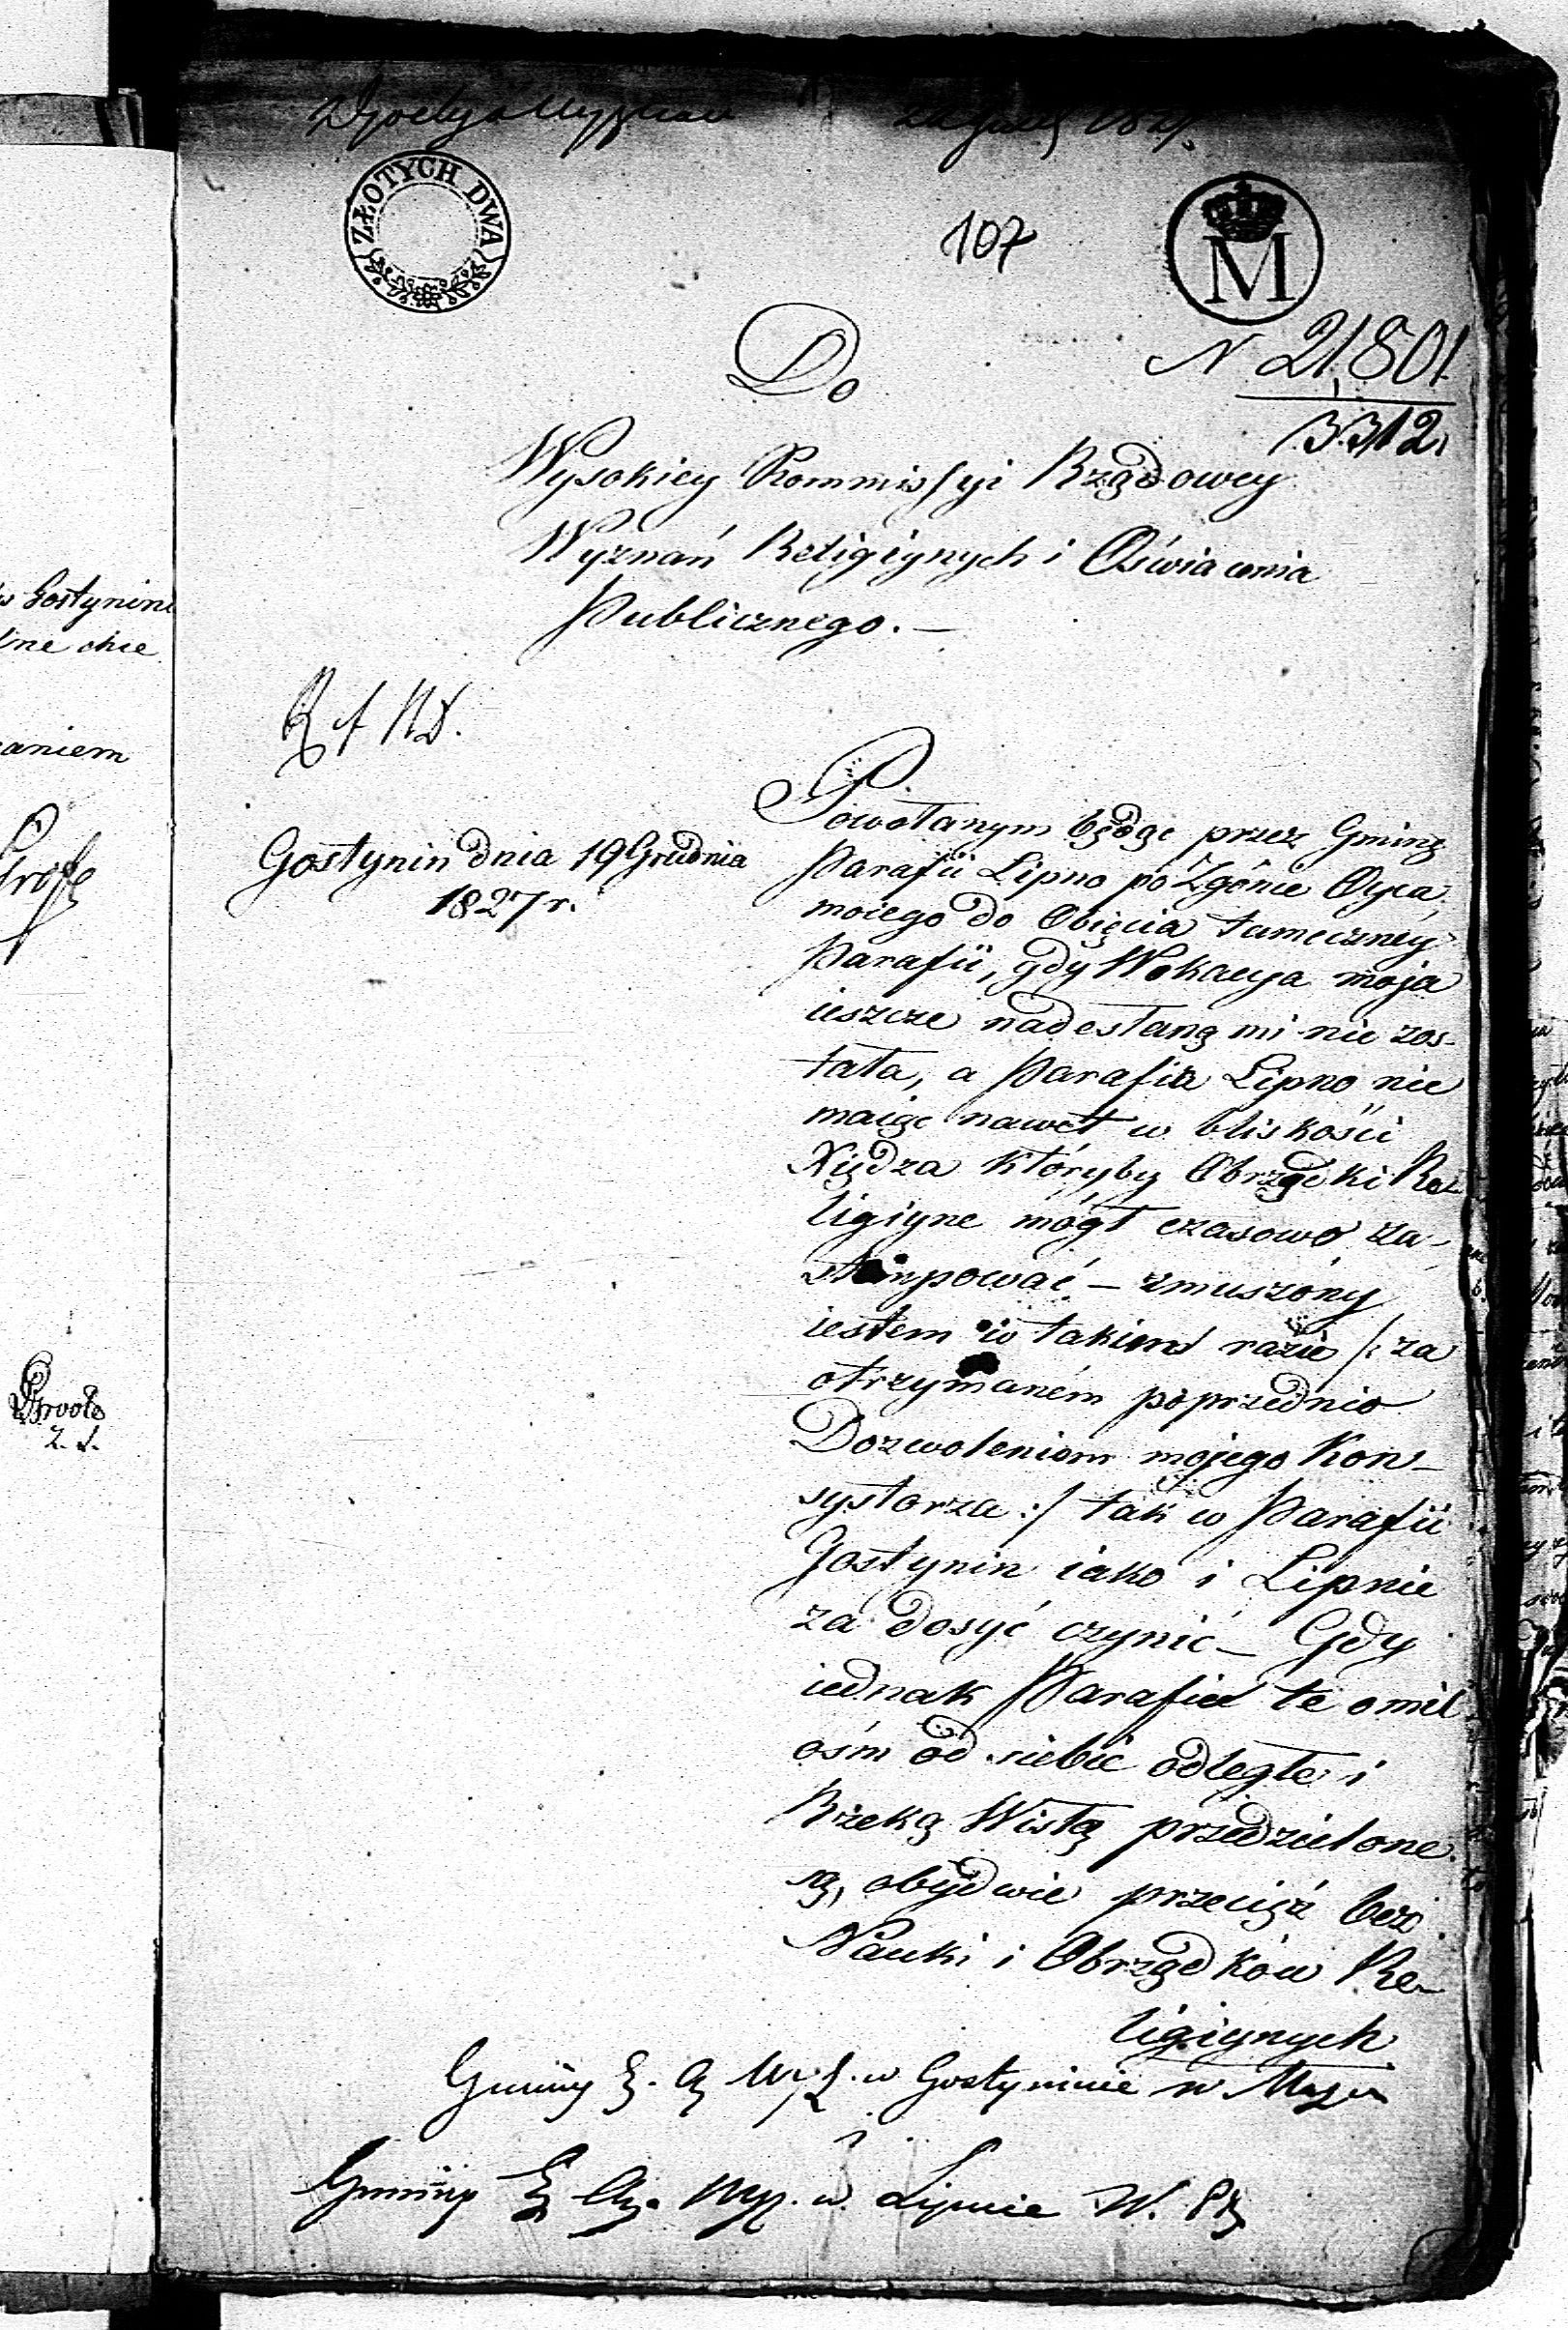 ZŁOTYCH DWA
107
M
N 21,801.
3312.
Do
Wysokiey Kommissyi Rządowey
Wyznań Religiynych i Oświacenia
Publicznego. —
w Gostynin
aniem
Gostynin dnia 19 Grudnia
1827 r.
Powołanym będąc przez Gminę
Parafii Lipno po Zgónie Oyca
moiego do Obięcia tameczney
Parafii, gdy Wokacya moja
ieszcze nadesłaną mi nie zos-
tała, a Parafia Lipno nie
maiąc nawet w bliskości
Xiędza któryby Obrządki Re-
ligiyne mógł czasowo za-
stempować — zmuszony
iestem w takim razie /: za
otrzymaném poprzednio
Dozwoleniem mojego Kon-
systorza :/ tak w Parafii
Gostynin iako i Lipnie
za dosyć czynić — Gdy
iednak Parafie te o mil
ośm od siebie odległe i
Rzeką Wisłą przedzielone
są, obydwie przecięż bez
Nauki i Obrządków Re-
ligiynych
Gminy E. A. Wyz. w Gostyninie w Maz.
Gminy E. Au. Wyz. w Lipnie W. Pł.